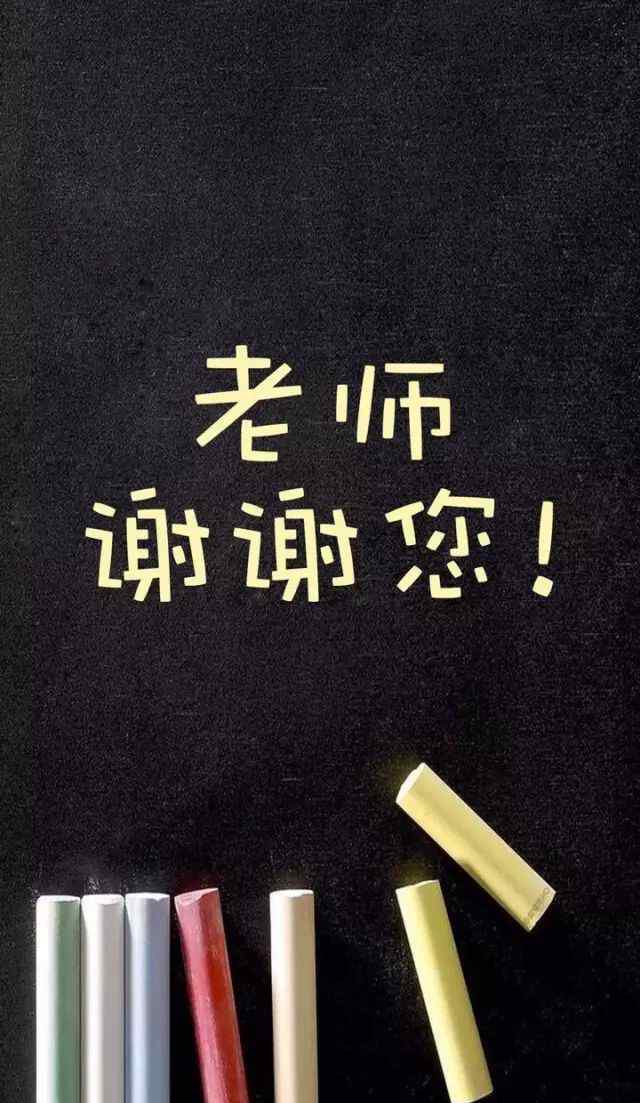 老师
谢谢您！